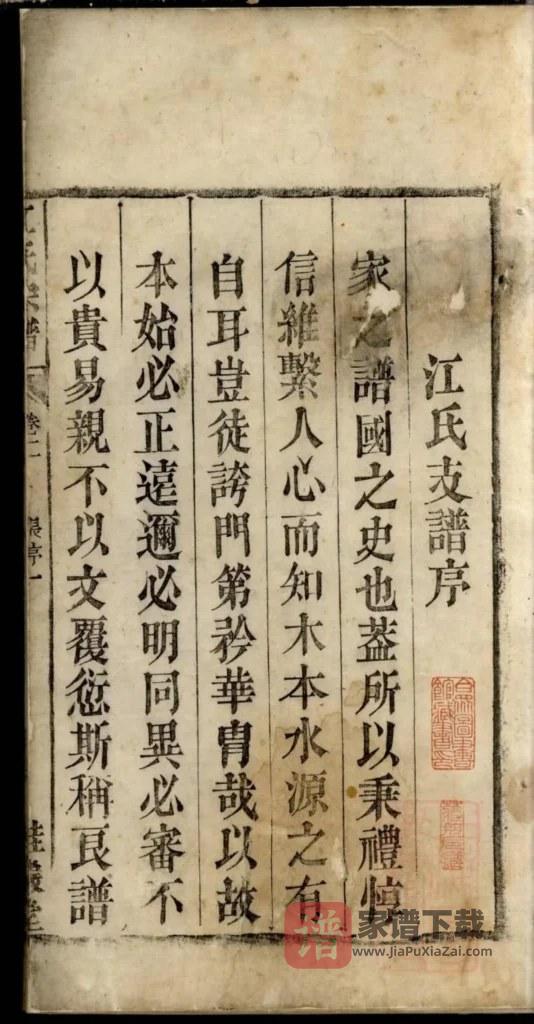 江氏支譜序
家之譜國之史也葢所以秉禮惇
信維繫人心而知木本水源之有
自耳豈徒誇門第矜華胄哉以故
本始必正遠邇必明同異必審不
以貴易親不以文覆愆斯稱良譜
江氏宗譜
卷一
序一
堂
譜
家谱下载
www.jiaPuXiaZai.com